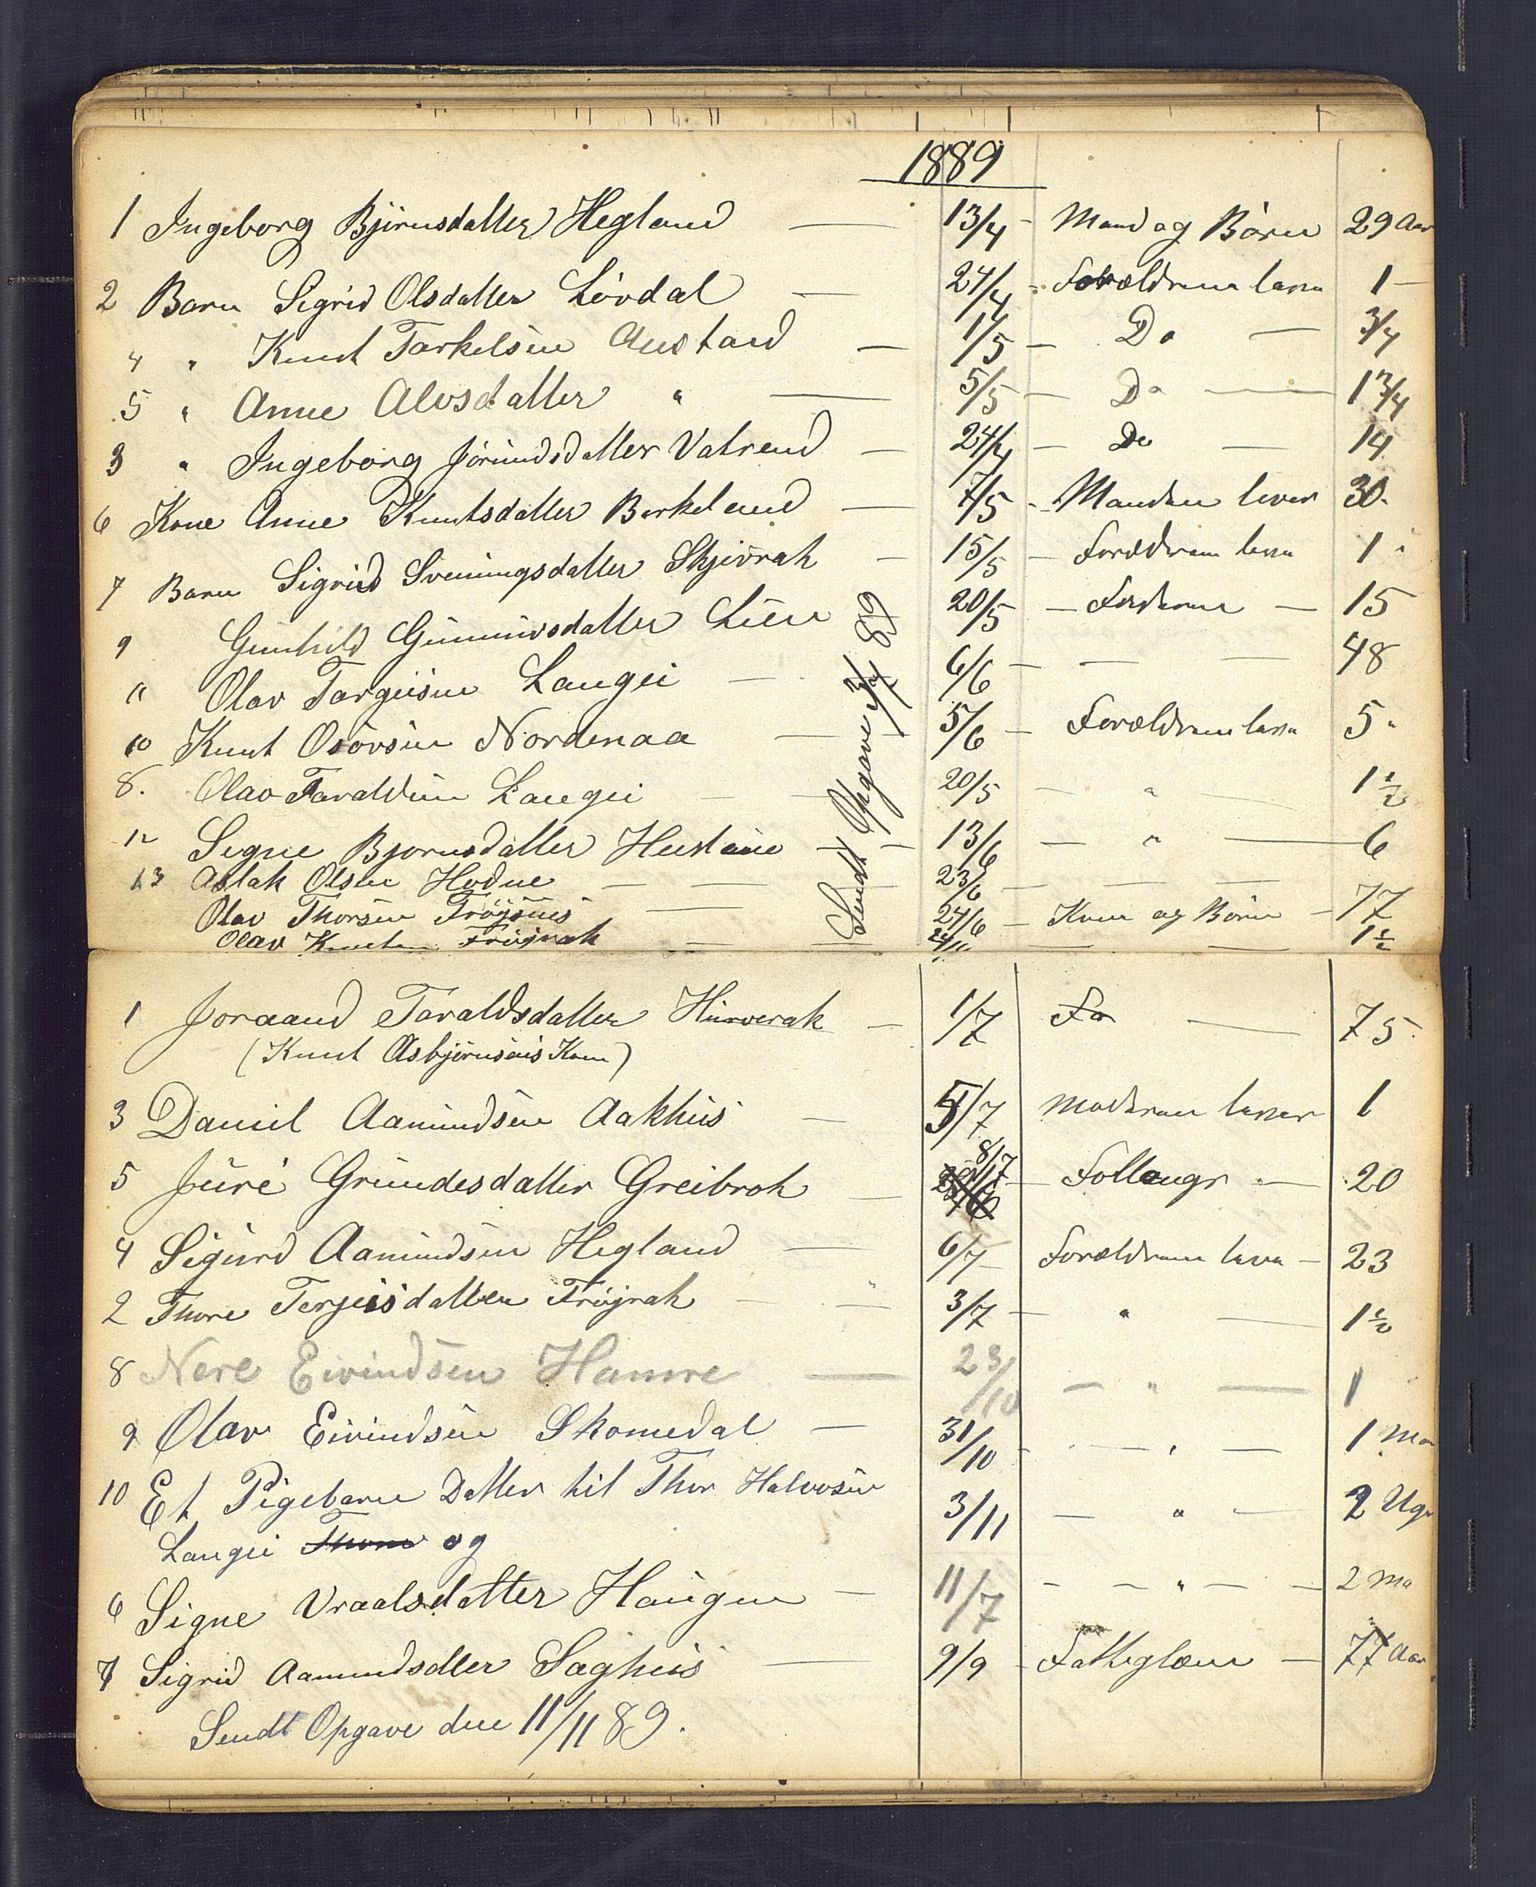 1889
1 Ingeborg Bjørnsdatter Hegland — 13/4 - Mand og Børn 29 Aar
2 Barn Sigrid Olsdatter Løvdal — 24/4 - Forældrene leva 1 —
4 " Knut Tarkelsen Austad — 1/5 — Do — 3/4
5 " Anne Alvsdatter " — 5/5 — Do — 1 3/4
3 " Ingeborg Jørundsdatter Vatrend — 24/4 — Do — 14
6 Kone Anne Knutsdatter Berkeland — 7/5 - Manden lever 30
7 Barn Sigrid Sveinungsdatter Skjevrak — 15/5 — Forældrene leva 1 "
9 Gunhild Gunnuvsdatter Lien 20/5 — — 15
11 Olav Targeisen Langei — 6/6 — — — 48
10 Knut Osøvsen Nordenaa — 5/6 — Forældrene leva 5 "
8. Olav Taraldsen Langei — 20/5 — " — 1 1/2
12 Signe Bjørnsdatter — 13/6 — " — 6
13 Aslak Olsen Hodne — — — 23/6 — — —
Olav Thorsen Frøysnes — 24/6 — Kone og Børn — 77
Olav Knutsen Frøjrak — 24/6 — — 1 1/2
Sendt Opgave 3/7 89
1 Joraand Taraldsdatter — 1/7 Fa — 75
(Knut Asbjørnsens Kone)
3 Daniel Aamundsen Aakhus — 5/7 Moderen lever 1
5 Juré Grundesdatter Greibrok — 8/7 — 20
4 Sigurd Aamundsen Hegland — 6/7 Forældrene leva — 23
2 Thore Terjeisdatter Frøjrak — — 3/7 — " — 1 1/2
8 Nere Eivindsen Hamre — 23/10 — " — 1
9 Olav Eivindsen Skomedal — 31/10 - — " — 1 Ma
10 Et Pigebarn Datter til Thor Halvosen 3/11 — " — 2 Uger
Langei Thore og
6 Signe Vraalsdatter Haugen — 11/7 - — " — — 2 Ma
7 Sigrid Aamundsdtter Saghus — 9/9 - Fattiglæm — 77 Aar
Sendt Opgave den 11/11 89.